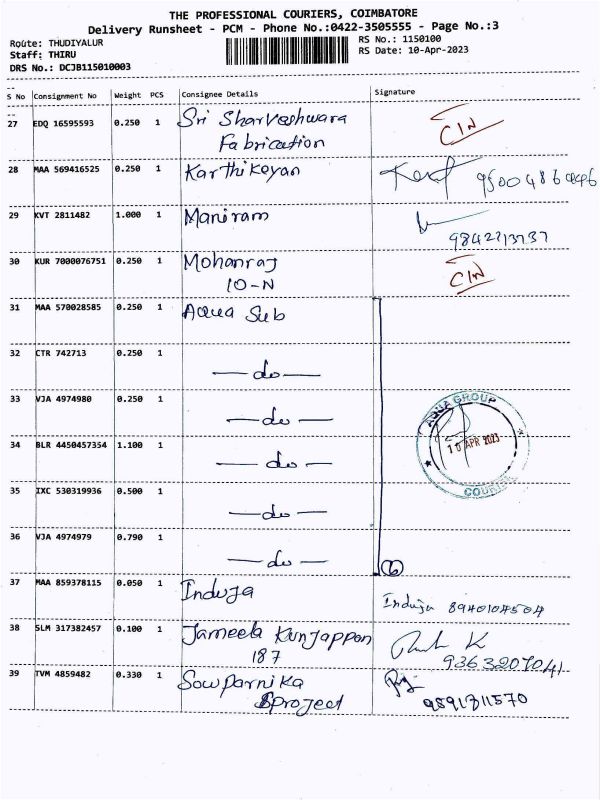 THE PROFESSIONAL COURIERS, COIMBATORE
Delivery Runsheet - PCM - Phone No.:0422-3505555 - Page No.:3
Route: THUDIYALUR
RS No.: 1150100
Staff: THIRU
RS Date: 10-Apr-2023
DRS No.: DCJB115010003
S No Consignment No Weight PCS Consignee Details Signature
27 EDQ 16595593 0.250 1 Sri Sharveshwara CIN
Fabrication
28 MAA 569416525 0.250 1 Karthikeyan
29 KVT 2811482 1.000 1 Maniram
30 KUR 7000076751 0.250 1 Mohanraj CIN
10-N
31 MAA 570028585 0.250 1 Aqua Sub
32 CTR 742713 0.250 1
— do —
33 VJA 4974980 0.250 1
— do —
34 BLR 4450457354 1.100 1
— do —
35 IXC 530319936 0.500 1
— do —
36 VJA 4974979 0.790 1
— do — 6
AQUA GROUP
10 APR 2023
37 MAA 859378115 0.050 1 Induja Induja 8940104504
38 SLM 317382457 0.100 1 Jameela Kunjappan
187 9363207041
39 TVM 4859482 0.330 1 Sowparnika
project 9891811570